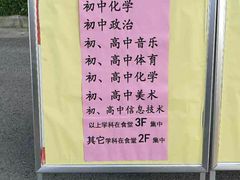 初中化学
初中政治
初、高中音乐
初、高中体育
初、高中化学
初、高中美术
初、高中信息技术
以上学科在食堂 3F 集中
其它学科在食堂 2F 集中